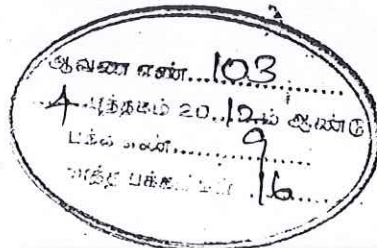 ஆவண எண்...103...
4 புத்தகம் 20.12ம் ஆண்டு
பக்க எண்...9...
மொத்த பக்கங்கள் 16...